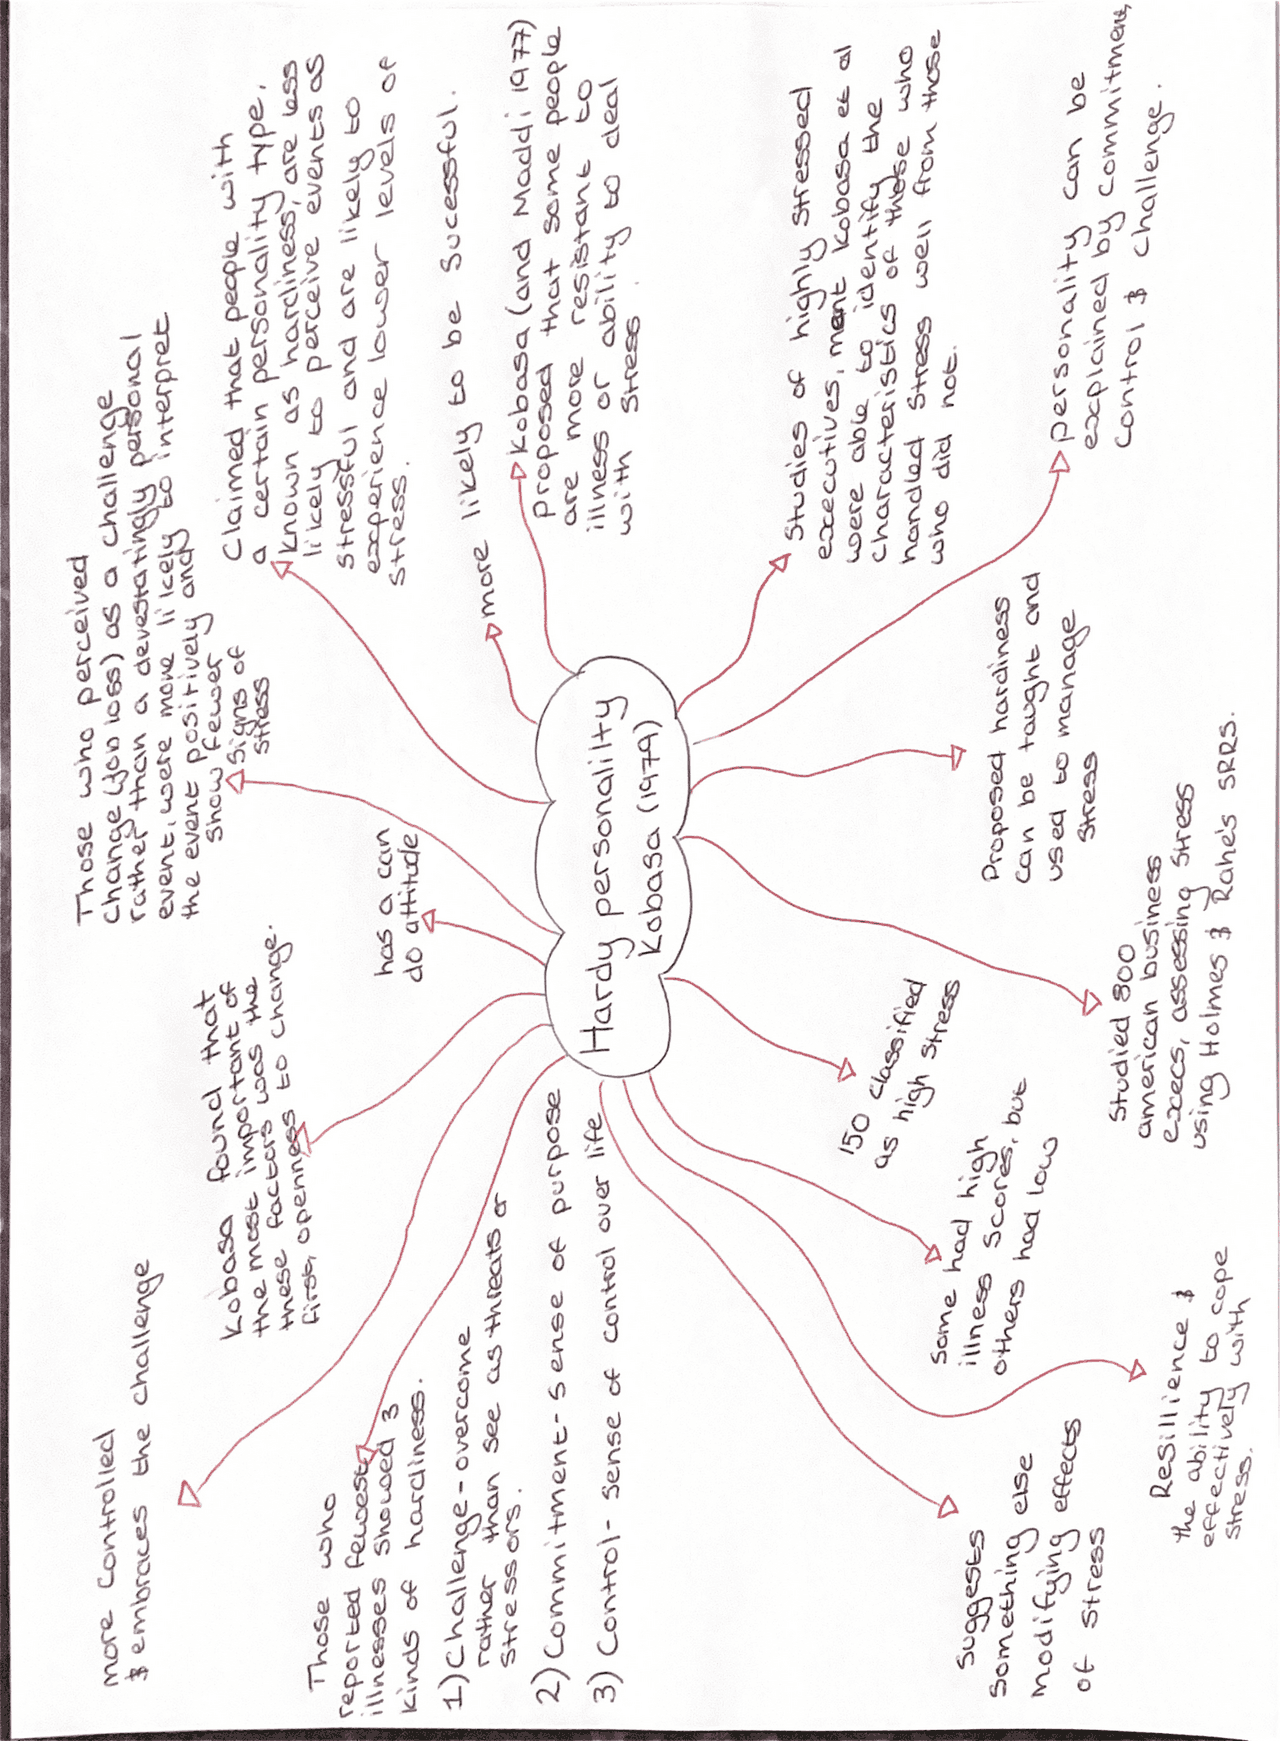 Hardy personality
Kobasa (1979)
more controlled
& embraces the challenge
Kobasa found that
the most important of
these factors was the
first, openness to change.
Those who perceived
change (job loss) as a challenge
rather than a devestatingly personal
event, were more likely to interpret
the event positively and
show fewer
signs of
stress
has a can
do attitude
Claimed that people with
a certain personality type,
known as hardiness, are less
likely to perceive events as
stressful and are likely to
experience lower levels of
stress.
more likely to be sucessful.
Kobasa (and Maddi 1977)
proposed that some people
are more resistant to
illness or ability to deal
with stress.
Studies of highly stressed
executives, ment Kobasa et al
were able to identify the
characteristics of those who
handled stress well from those
who did not.
personality can be
explained by commitment,
control & challenge.
Proposed hardiness
can be taught and
used to manage
stress
Studied 800
american business
execs, assessing stress
using Holmes & Rahe's SRRS.
150 classified
as high stress
Some had high
illness scores, but
others had low
Resillience &
the ability to cope
effectively with
stress.
Suggests
something else
modifying effects
of stress
Those who
reported fewest
illnesses showed 3
kinds of hardiness.
1) Challenge - overcome
rather than see as threats or
stressors.
2) Commitment - sense of purpose
3) Control - sense of control over life